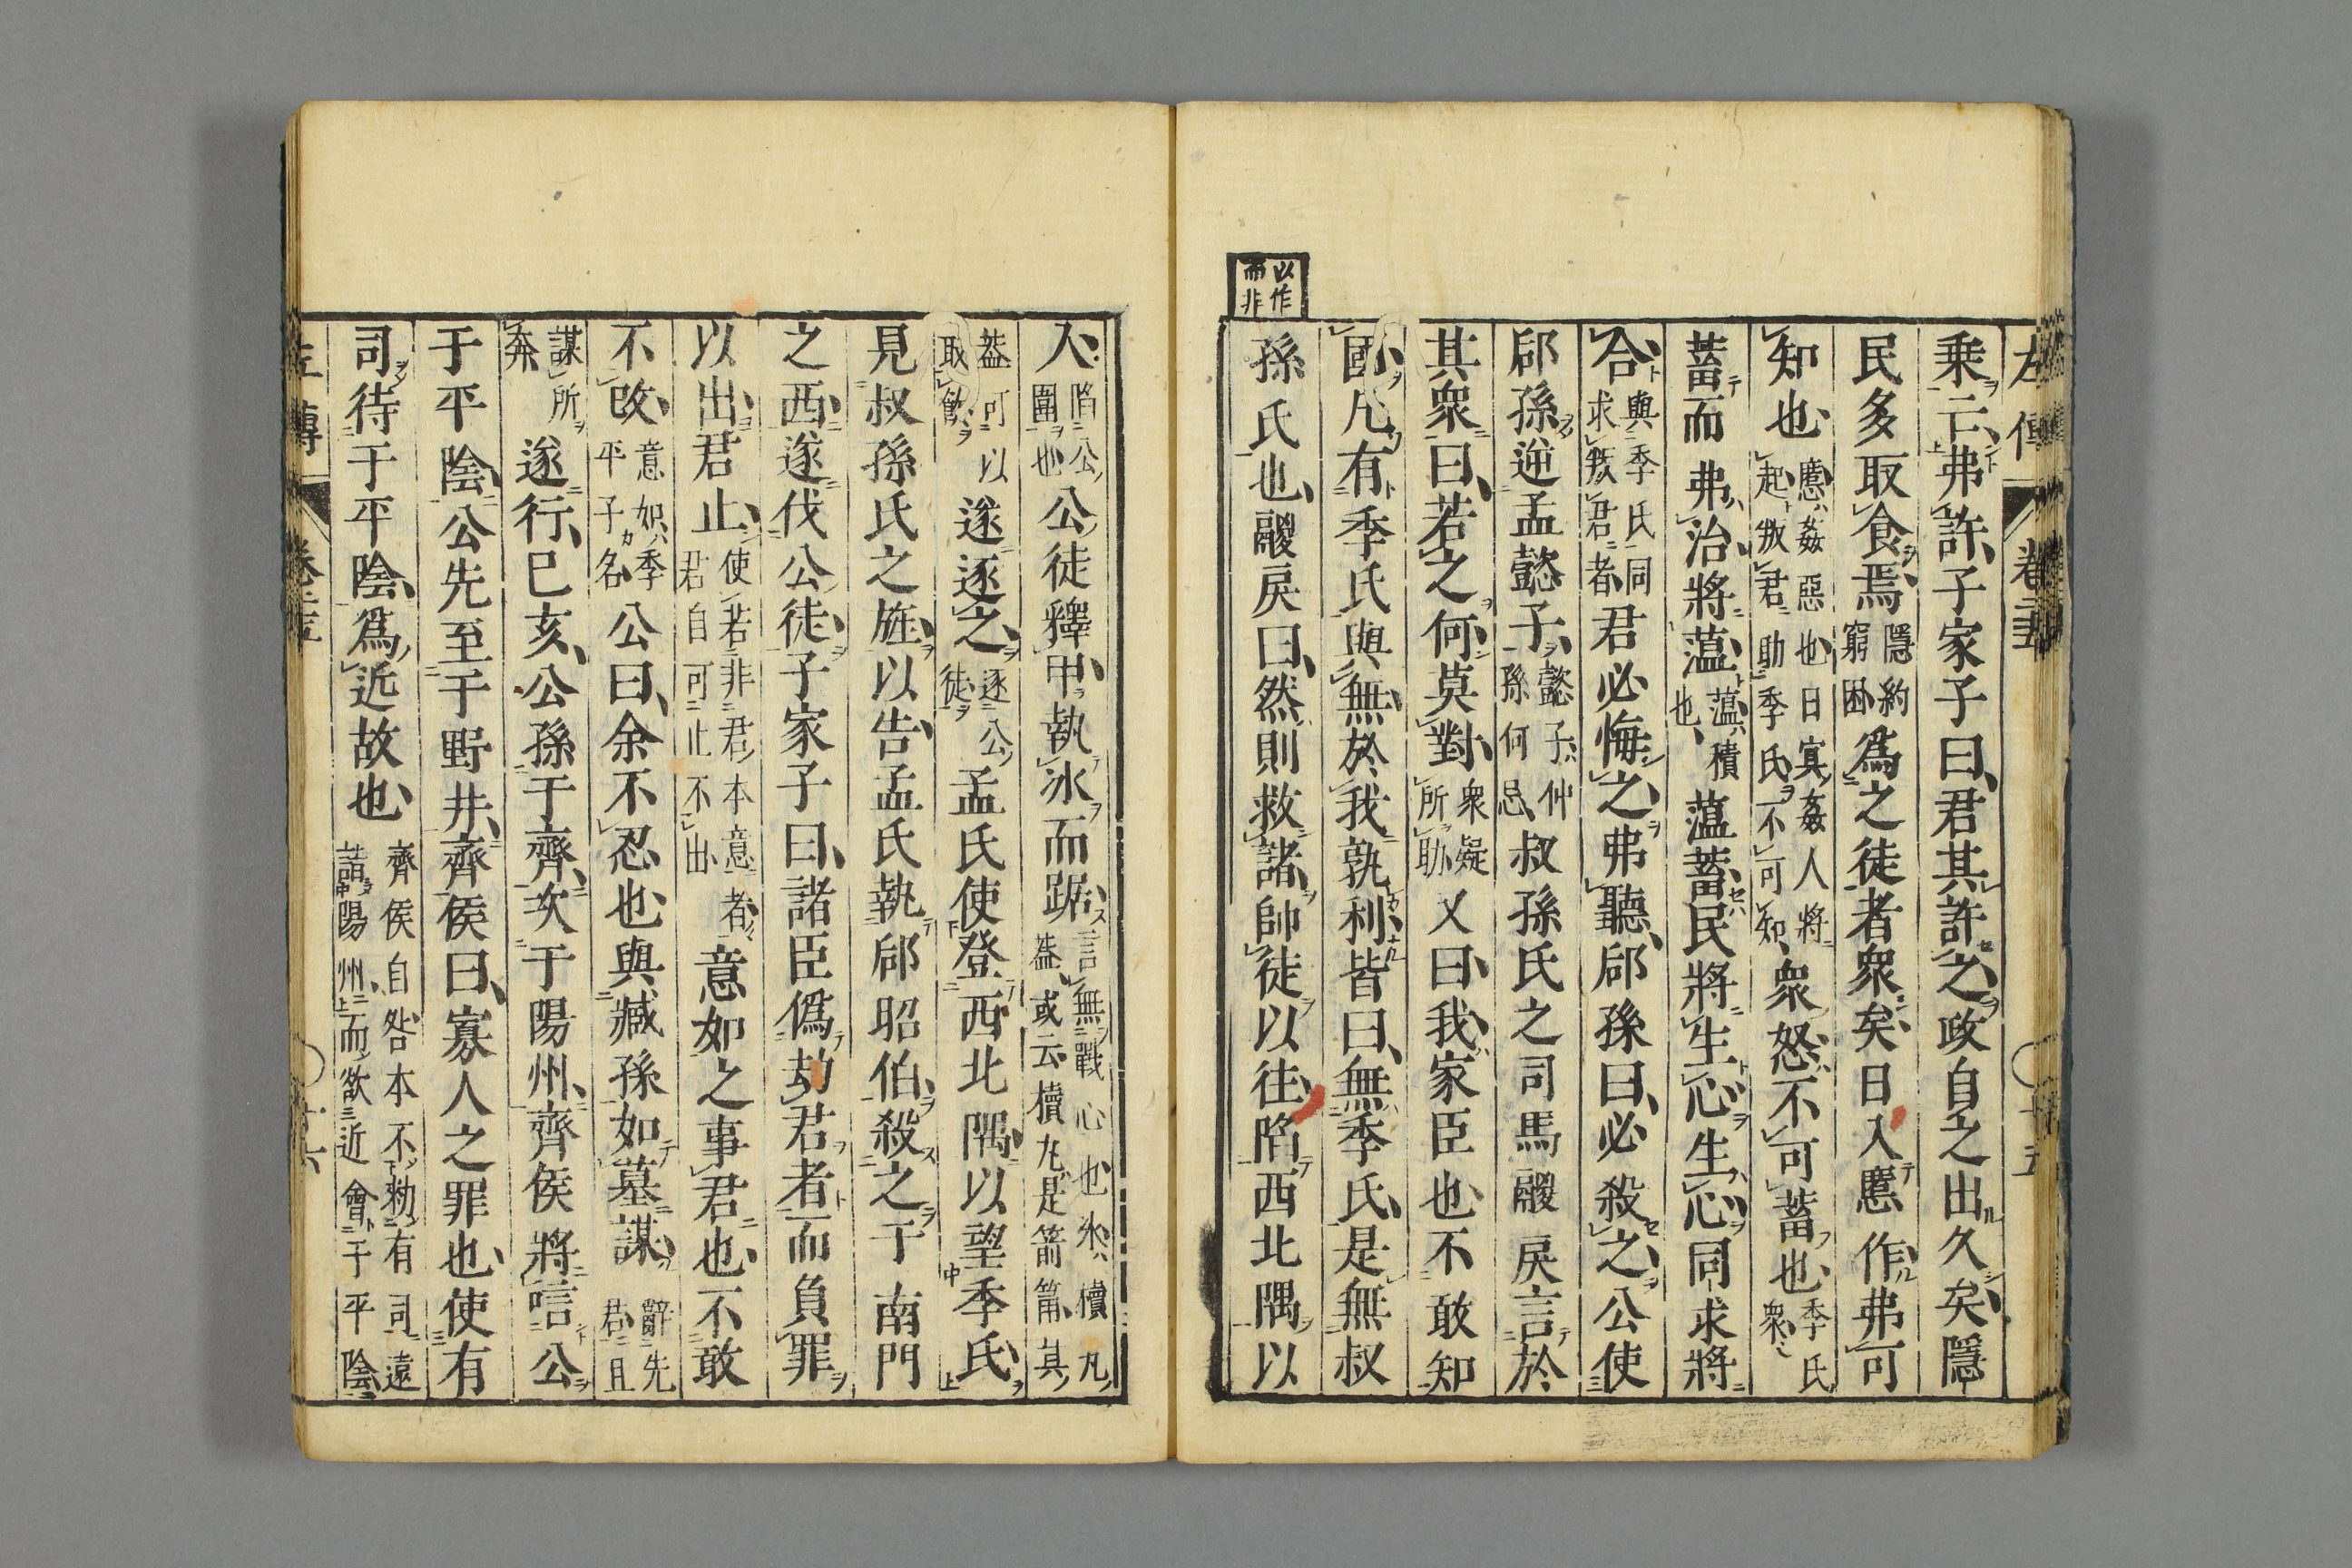 左傳 卷二十五 十五
乗亡弗許子家子曰君其許之政自之出久矣隱
民多取食焉隱約窮困爲之徒者衆矣日入慝作弗可
知也慝姦惡也日冥姦人將起叛君助季氏不可知衆怒不可蓄也季氏衆
蓄而弗治將薀薀積也薀蓄民將生心生心同求將
合與季氏同求叛君者君必悔之弗聽郈孫曰必殺之公使
郈孫逆孟懿子懿子仲孫何忌叔孫氏之司馬鬷戾言於
其衆曰若之何莫對衆疑所助又曰我家臣也不敢知
國凡有季氏與無於我孰利皆曰無季氏是無叔
以作而非
孫氏也鬷戾曰然則救諸帥徒以往陷西北隅以
入陷公圍也公徒釋甲執冰而踞言無戰心也氷櫝丸蓋或云櫝丸是箭筩其
蓋可以取飲遂逐之逐公徒孟氏使登西北隅以望季氏
見叔孫氏之旌以告孟氏執郈昭伯殺之于南門
之西遂伐公徒子家子曰諸臣僞劫君者而負罪
以出君止使若非君本意者君自可止不出意如之事君也不敢
不改意如季平子名公曰余不忍也與臧孫如墓謀辭先君且
謀所奔遂行已亥公孫于齊次于陽州齊侯將唁公
于平陰公先至于野井齊侯曰寡人之罪也使有
司待于平陰爲近故也齊侯自咎本不勑有司遠詣陽州而欲近會于平陰
左傳 卷二十五 十六